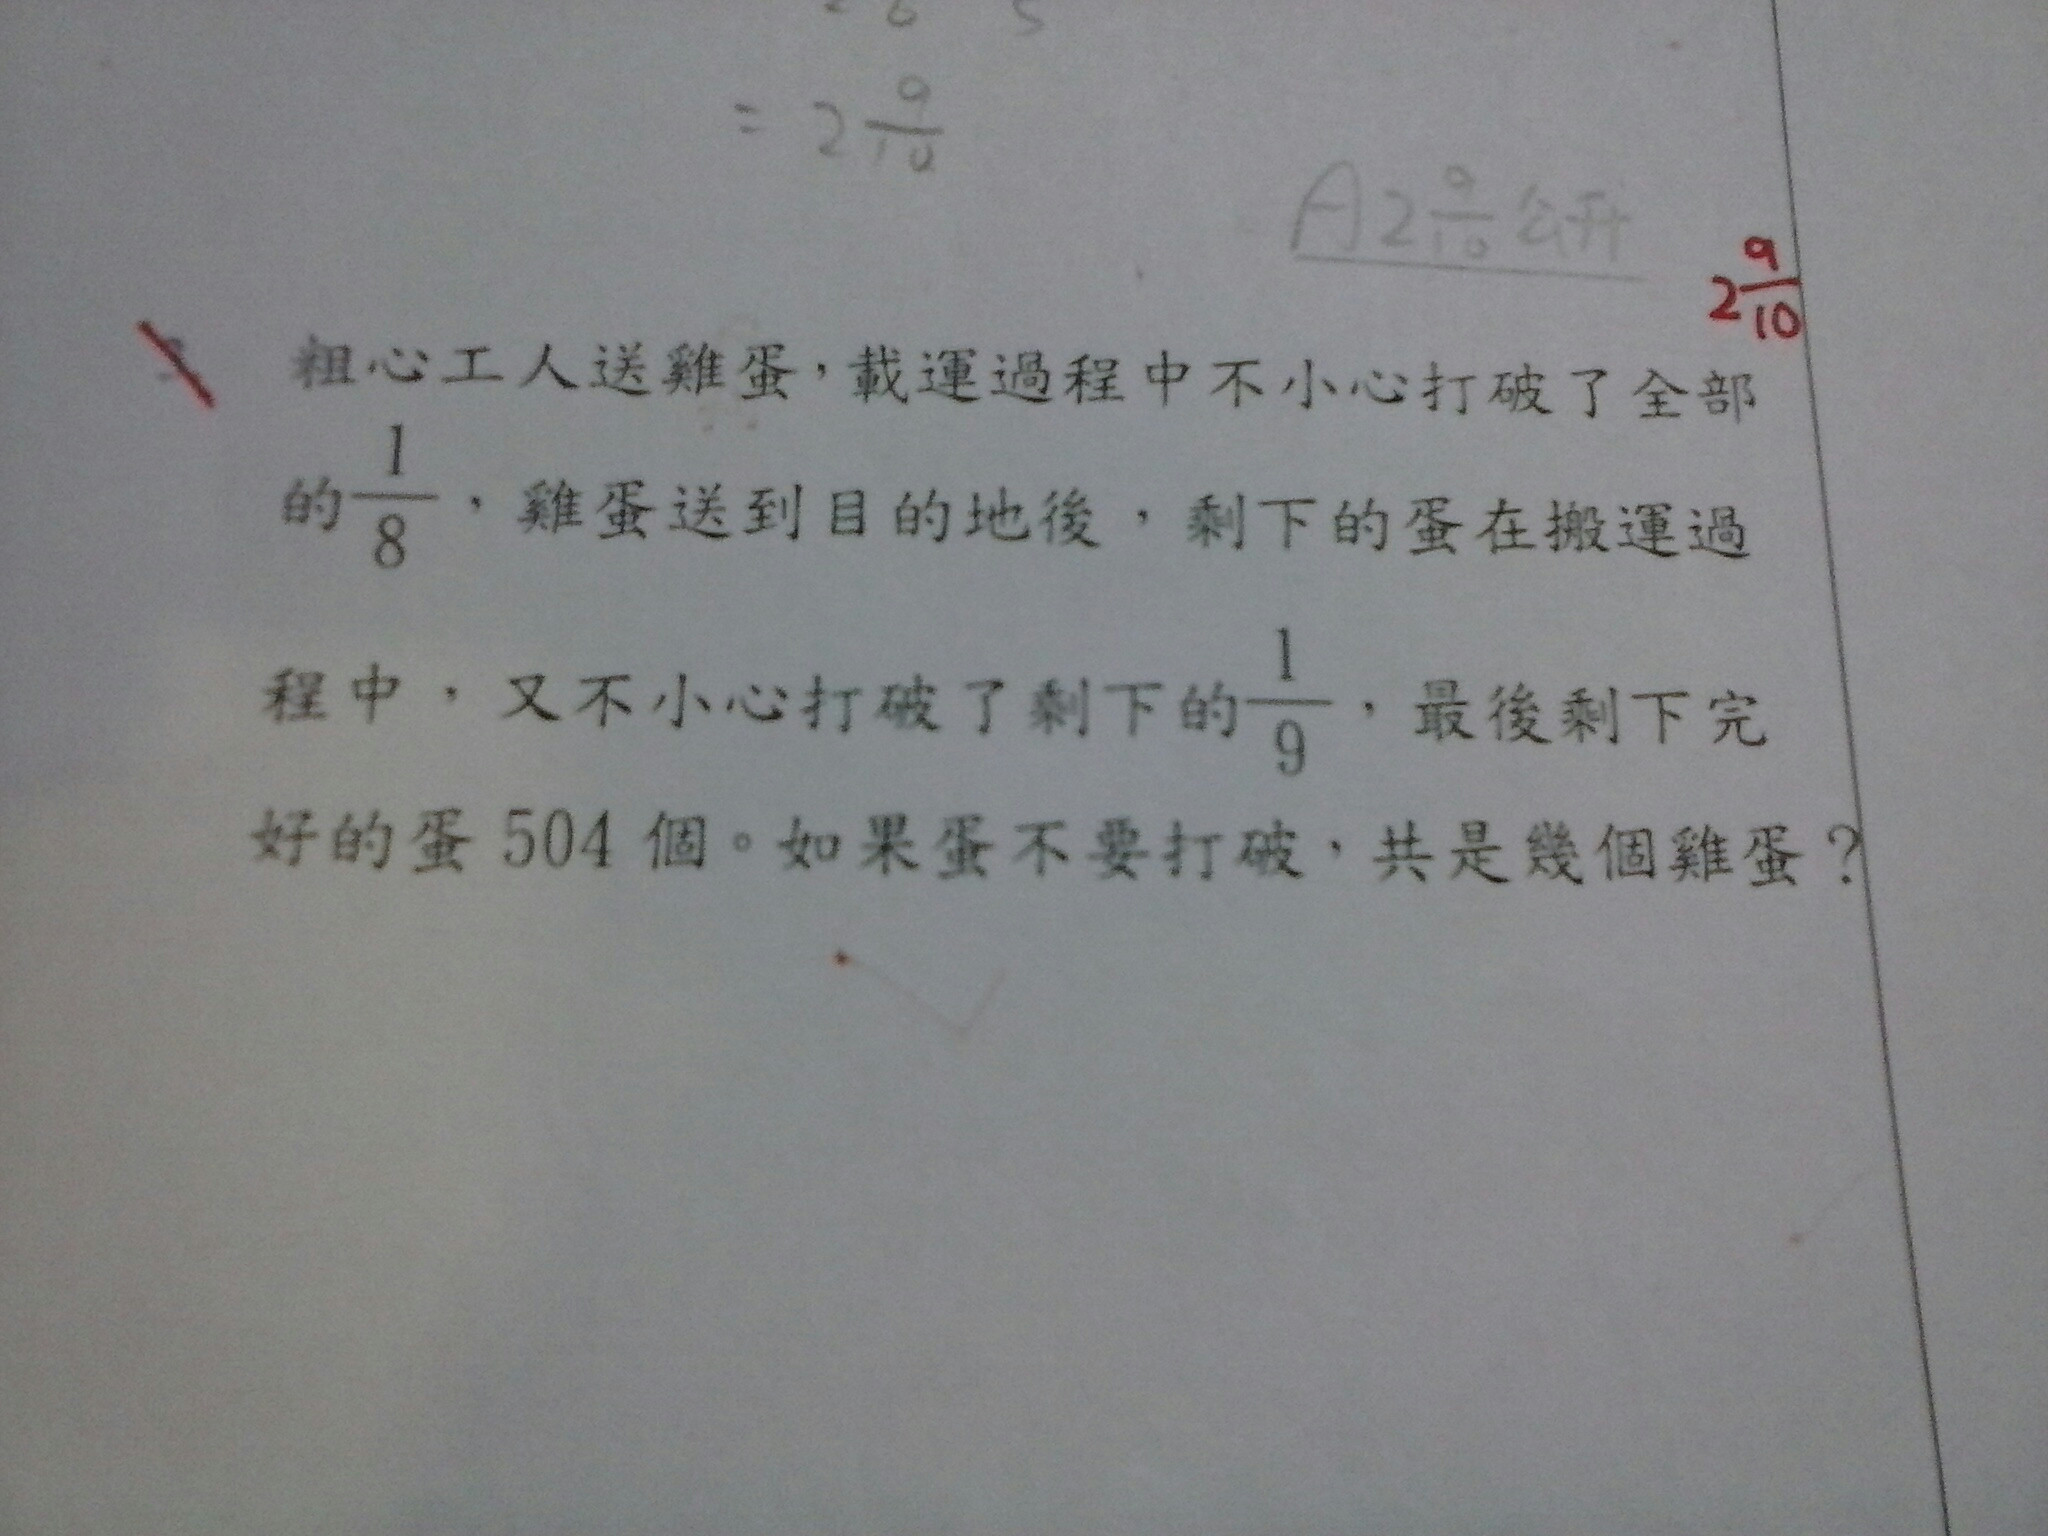 = 2 9/10
A 2 9/10 公升
2 9/10
粗心工人送雞蛋，載運過程中不小心打破了全部
的 1/8 ，雞蛋送到目的地後，剩下的蛋在搬運過
程中，又不小心打破了剩下的 1/9 ，最後剩下完
好的蛋 504 個。如果蛋不要打破，共是幾個雞蛋？